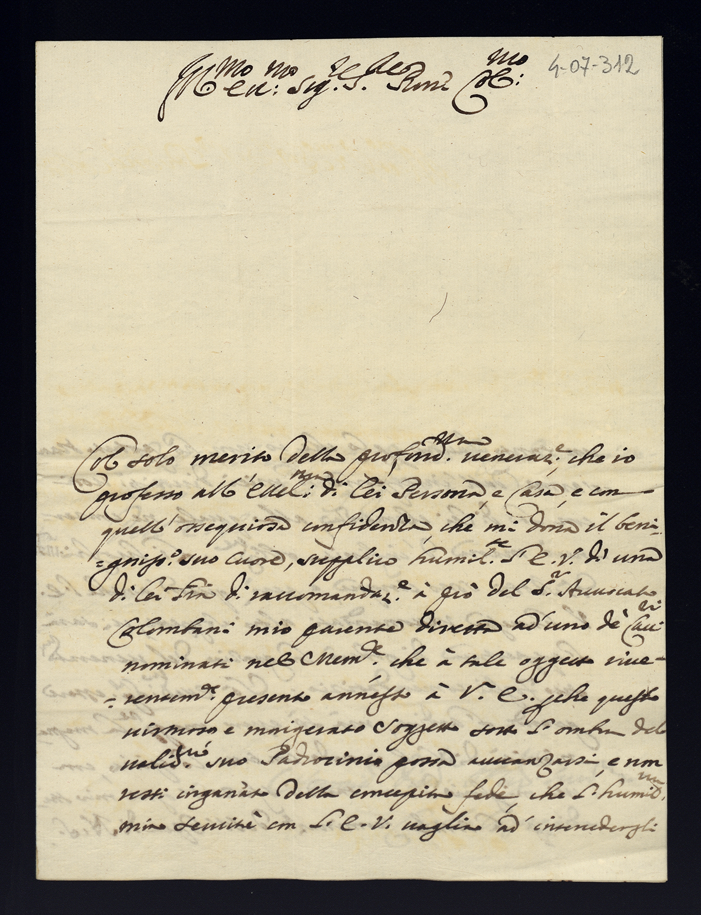 4-07-312
Ill.mo ecc.mo Sig.re S. Pron Col.mo
Col solo merito della profond.ma veneraz.e che io
professo all' Ecell.ma di lei Persona, e Casa, e con
quell' ossequiosa confidenza, che mi dona il beni=
=gniss.o suo Cuore, supplico humil.te S. E. V. di una
di lei Fra di raccomandaz.e à prò del S.r Auuocato
Colombani mio parente diretta ad' uno de Cau.ri
nominati nel Mem.le che à tale oggetto riue=
=rentem.te presento annesso à V. E. perche questo
virtuoso e morigerato Soggetto sotto l' ombra del
valid.mo suo Padrocinio possa auuanzarsi, e non
resti inganata della concepita fede che l' humil.ma
mia seruitù con S. E. V. uaglia ad' intercedergli